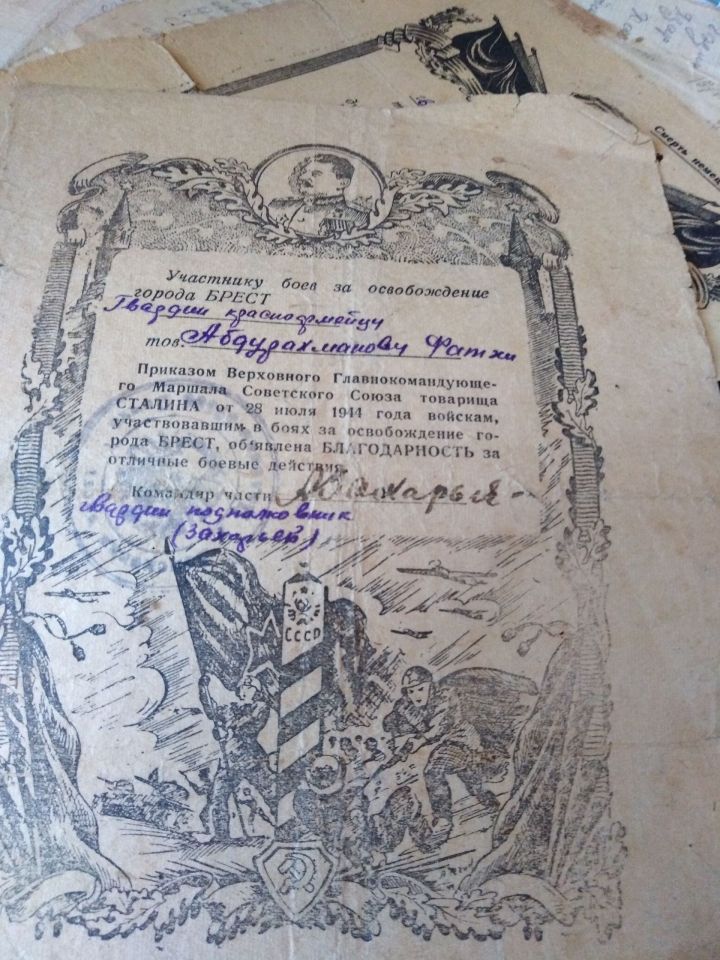 Смерть немец
Участнику боев за освобождение
города БРЕСТ
Гвардии красноармейцу
тов. Абдурахманову Фатхи
Приказом Верховного Главнокомандующе-
го Маршала Советского Союза товарища
СТАЛИНА от 28 июля 1944 года войскам,
участвовавшим в боях за освобождение го-
рода БРЕСТ, об'явлена БЛАГОДАРНОСТЬ за
отличные боевые действия.
Командир части
гвардии подполковник
(Захарьев)
СССР